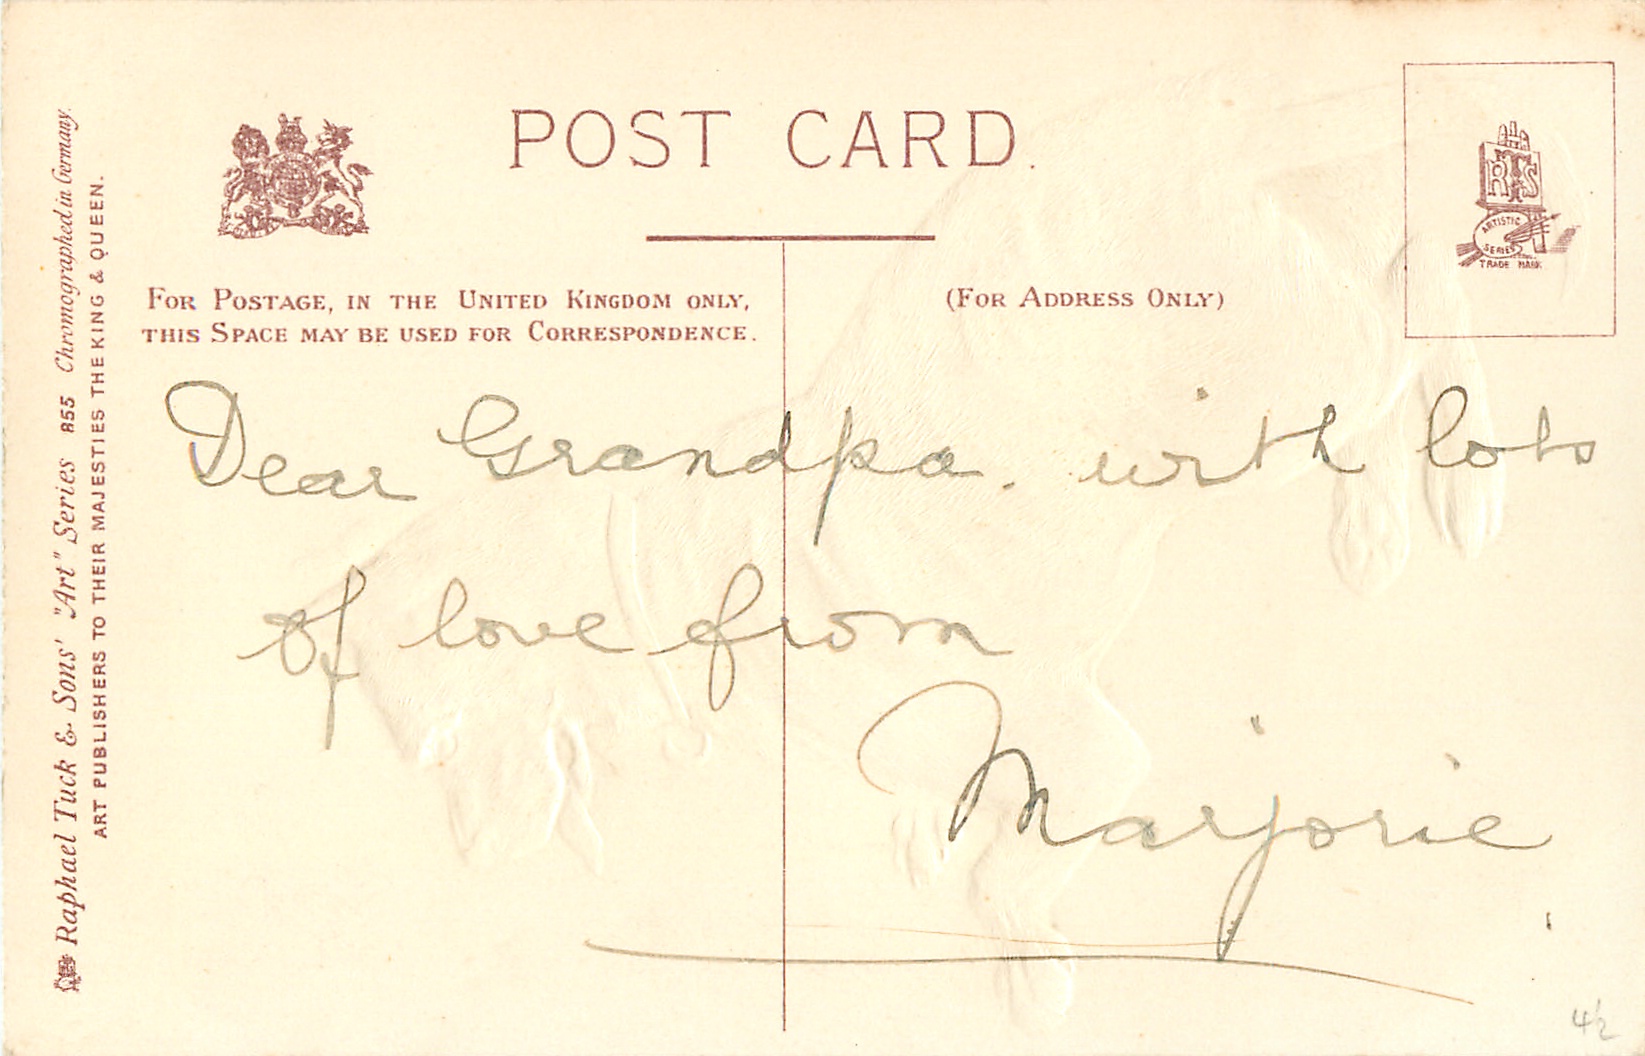 POST CARD.
RTS
ARTISTIC
SERIES
TRADE MARK
FOR POSTAGE, IN THE UNITED KINGDOM ONLY,
THIS SPACE MAY BE USED FOR CORRESPONDENCE.
(FOR ADDRESS ONLY)
Dear Grandpa. with lots
of love from
Marjorie
Raphael Tuck & Sons' "Art" Series 855 Chromographed in Germany.
ART PUBLISHERS TO THEIR MAJESTIES THE KING & QUEEN.
4/2